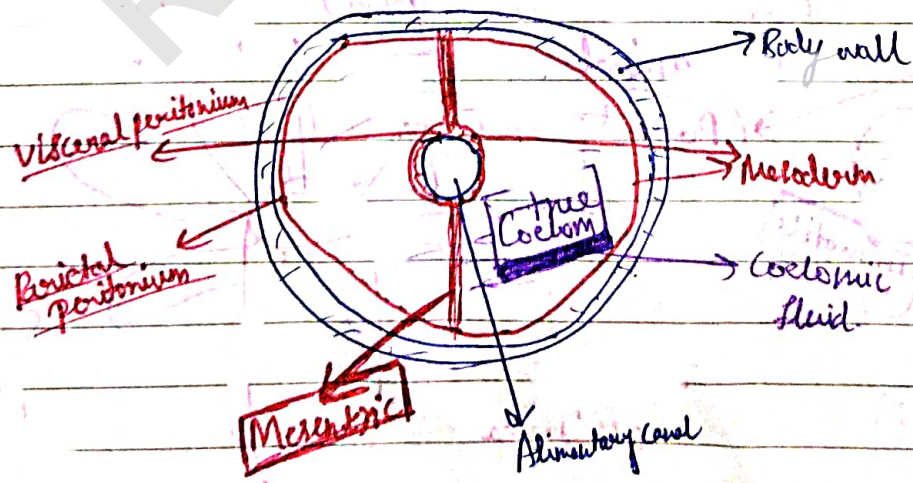 Body wall
Visceral peritonium
Mesoderm
[true
Coelom]
Parietal
peritonium
Coelomic
fluid.
Mesentric
Alimentary canal